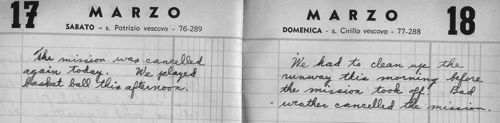 17 MARZO
SABATO - s. Patrizio vescovo - 76-289
The mission was cancelled
again today. We played
basket ball this afternoon.
MARZO 18
DOMENICA - s. Cirillo vescovo - 77-288
We had to clean up the
runway this morning before
the mission took off. Bad
weather cancelled the mission.